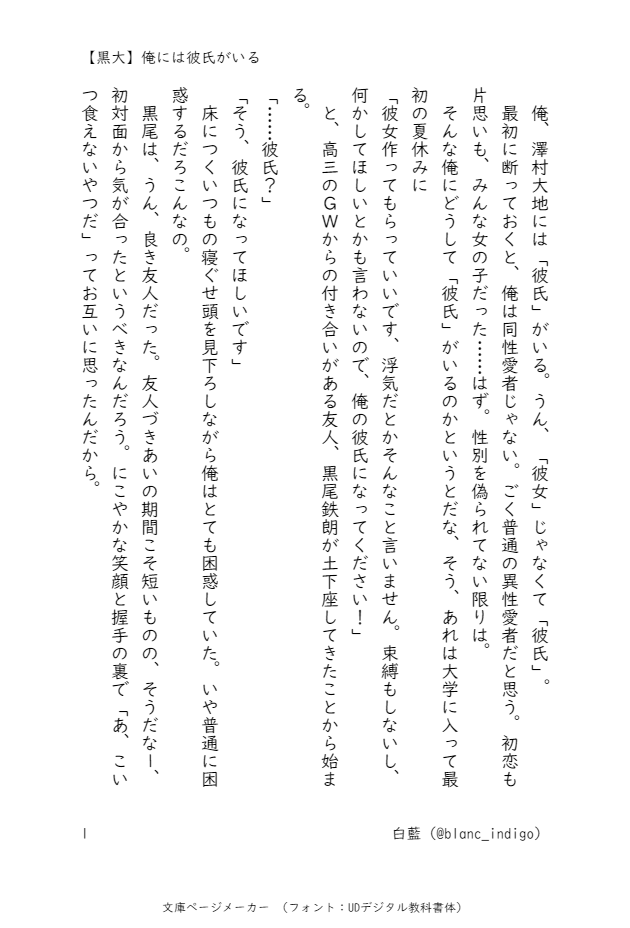 【黒大】俺には彼氏がいる
俺、澤村大地には「彼氏」がいる。うん、「彼女」じゃなくて「彼氏」。
最初に断っておくと、俺は同性愛者じゃない。ごく普通の異性愛者だと思う。初恋も
片思いも、みんな女の子だった……はず。性別を偽られてない限りは。
そんな俺にどうして「彼氏」がいるのかというとだな、そう、あれは大学に入って最
初の夏休みに
「彼女作ってもらっていいです、浮気だとかそんなこと言いません。束縛もしないし、
何かしてほしいとかも言わないので、俺の彼氏になってください！」
と、高三のＧＷからの付き合いがある友人、黒尾鉄朗が土下座してきたことから始ま
る。
「……彼氏？」
「そう、彼氏になってほしいです」
床につくいつもの寝ぐせ頭を見下ろしながら俺はとても困惑していた。いや普通に困
惑するだろこんなの。
黒尾は、うん、良き友人だった。友人づきあいの期間こそ短いものの、そうだなー、
初対面から気が合ったというべきなんだろう。にこやかな笑顔と握手の裏で「あ、こい
つ食えないやつだ」ってお互いに思ったんだから。
1
白藍（@blanc_indigo）
文庫ページメーカー （フォント：UDデジタル教科書体）